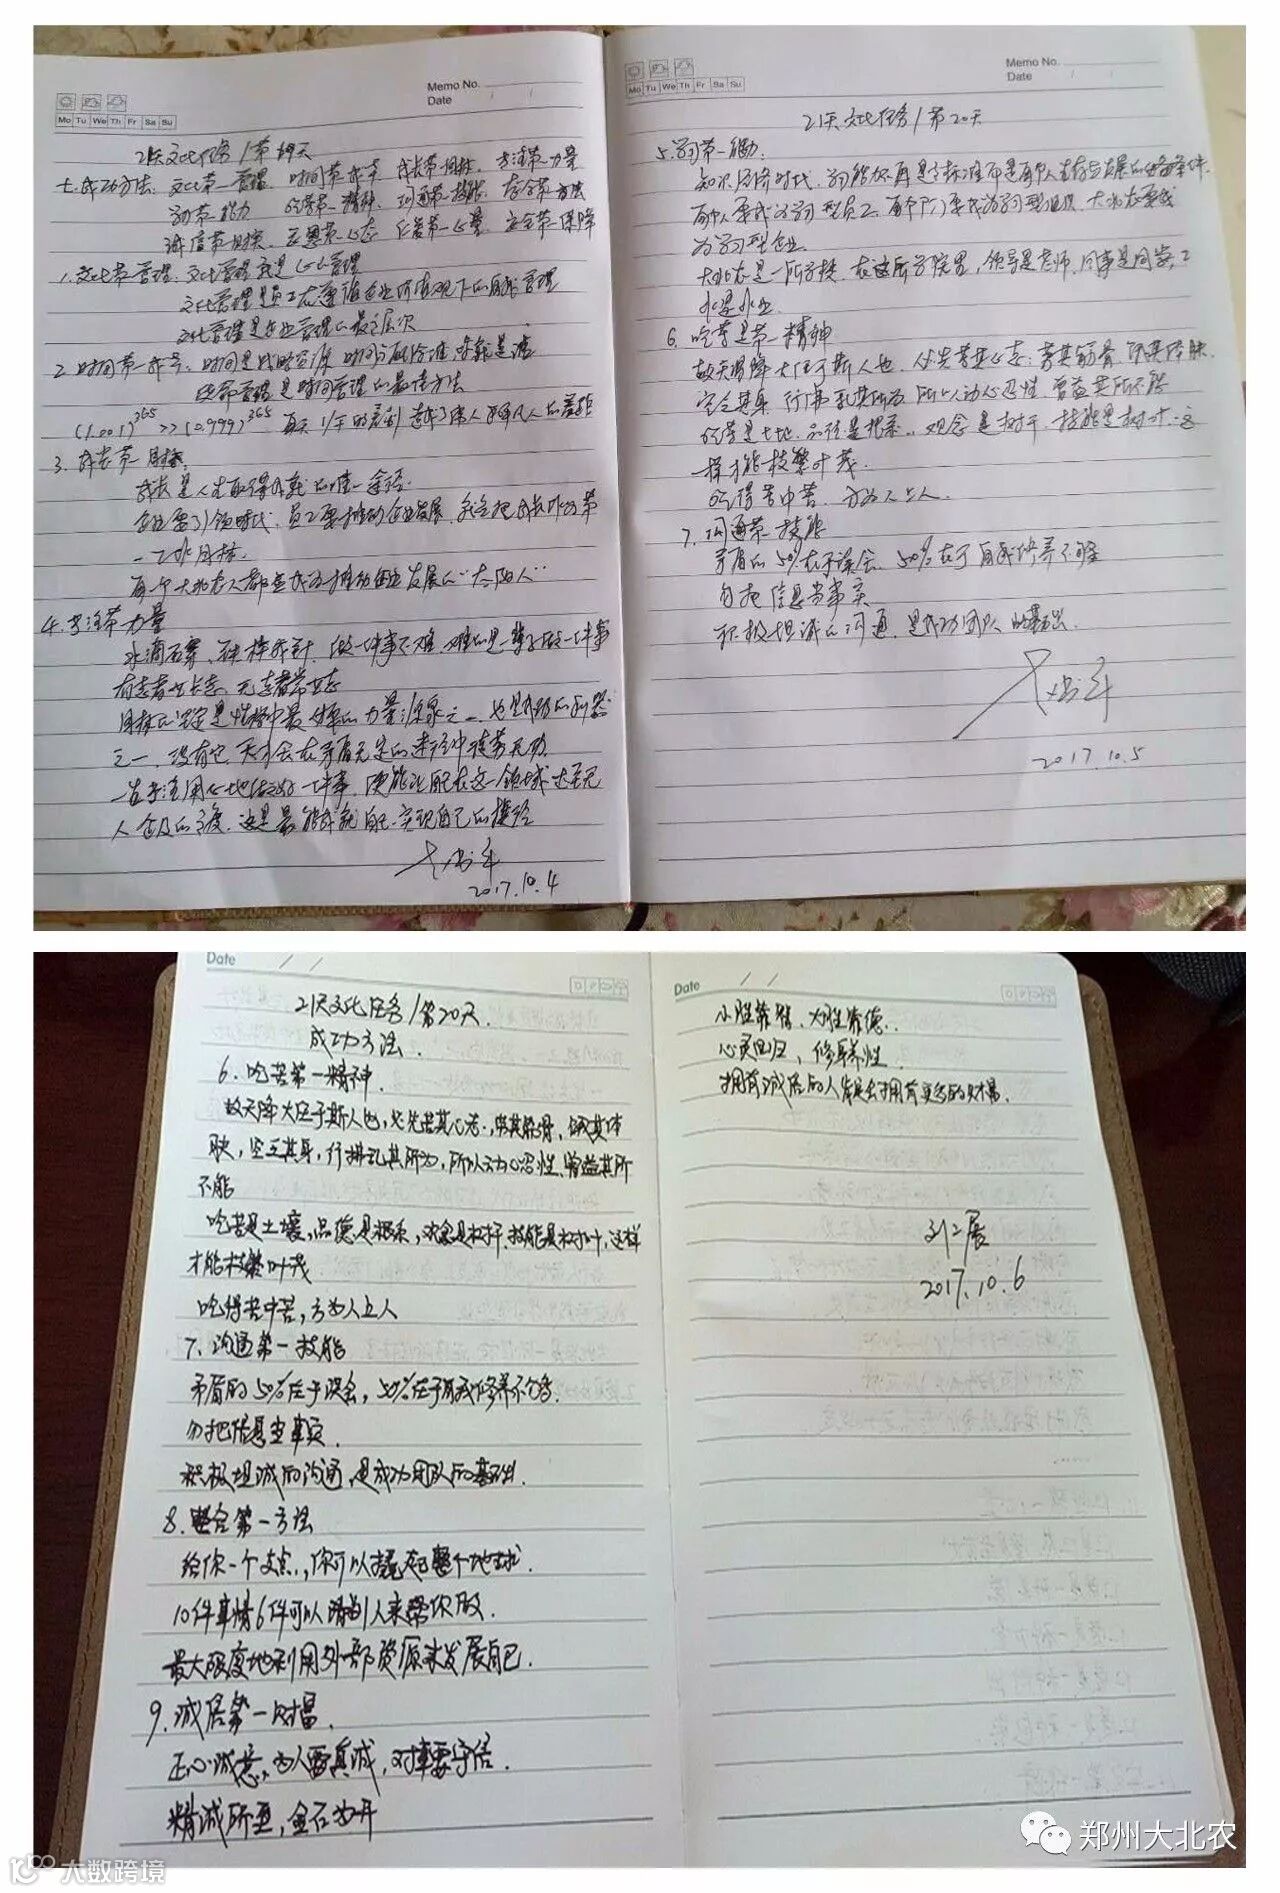 Memo No.
Date
Mo Tu We Th Fr Sa Su
21天文化任务/第19天
七.成功方法: 文化第一管理 时间第一成本 成长第一目标 专注第一力量
学习第一能力 吃苦第一精神 沟通第一技能 整合第一方法
诚信第一财富 感恩第一心态 仁爱第一心量 安全第一保障
1.文化第一管理: 文化管理就是心的管理
文化管理是员工在遵循企业价值观下的自我管理
文化管理是企业管理的最高层次
2.时间第一成本: 时间是战略资源
是时间管理的最佳方法
(1.001)365 >> (0.999)365 每天1/千的差别 造就了伟人与凡人的差距
3.成长第一目标
成长是人生取得成就的唯一途径.
企业要引领时代, 员工要推动企业发展, 就应把成长作为第
一工作目标.
每个大北农人都应成为推动企业发展的“太阳人”
4.专注第一力量
水滴石穿、铁棒成针, 做一件事不难, 难的是一辈子做一件事
有志者立长志, 无志者常立志
目标的坚定是性格中最必要的力量源泉之一, 也是成功的利器
之一, 没有它, 天才会在矛盾无定的迷径中徒劳无功.
一生专注用心地做好一件事, 便能在这一领域达到无
人企及的高度, 这是最能成就自己、实现自己的捷径
2017.10.4
Memo No.
Date
Mo Tu We Th Fr Sa Su
21天文化任务/第20天
5.学习第一能力.
知识经济时代, 学习能力不再是高标准而是每个人生存与发展的必备条件.
每个人要成为学习型员工, 每个部门要成为学习型组织, 大北农要成
为学习型企业.
大北农是一所学校, 在这所学院里, 领导是老师, 同事是同学, 工
作是作业.
6.吃苦是第一精神
故天将降大任于斯人也, 必先苦其心志, 劳其筋骨, 饿其体肤,
空乏其身, 行拂乱其所为, 所以动心忍性, 曾益其所不能
吃苦是土地, 品德是根系, 观念是树干, 技能是树叶, 这
样才能枝繁叶茂.
吃得苦中苦, 方为人上人.
7.沟通第一技能
矛盾的50%在于误会, 50%在于自我修养不够
勿把信息当事实
积极坦诚的沟通, 是成功团队的基础.
2017.10.5
Date / /
21天文化任务/第20天.
成功方法.
6.吃苦第一精神.
故天降大任于斯人也, 必先苦其心志, 劳其筋骨, 饿其体
肤, 空乏其身, 行拂乱其所为, 所以动心忍性, 曾益其所
不能
吃苦是土壤, 品德是根系, 观念是树干, 技能是树叶, 这样
才能枝繁叶茂
吃得苦中苦, 方为人上人
7、沟通第一技能
矛盾的50%在于误会, 50%在于自我修养不够.
勿把信息当事实.
积极坦诚的沟通, 是成功团队的基础.
8.整合第一方法
给你一个支点, 你可以撬起整个地球.
10件事情6件可以请别人来帮你做.
最大限度地利用外部资源来发展自己.
9.诚信第一财富.
正心诚意, 为人要真诚, 对事要守信.
精诚所至, 金石为开
Date / /
小胜靠智, 大胜靠德.
心灵回归, 修身养性.
拥有诚信的人会拥有更多的财富.
2017.10.6
郑州大北农
大数跨境